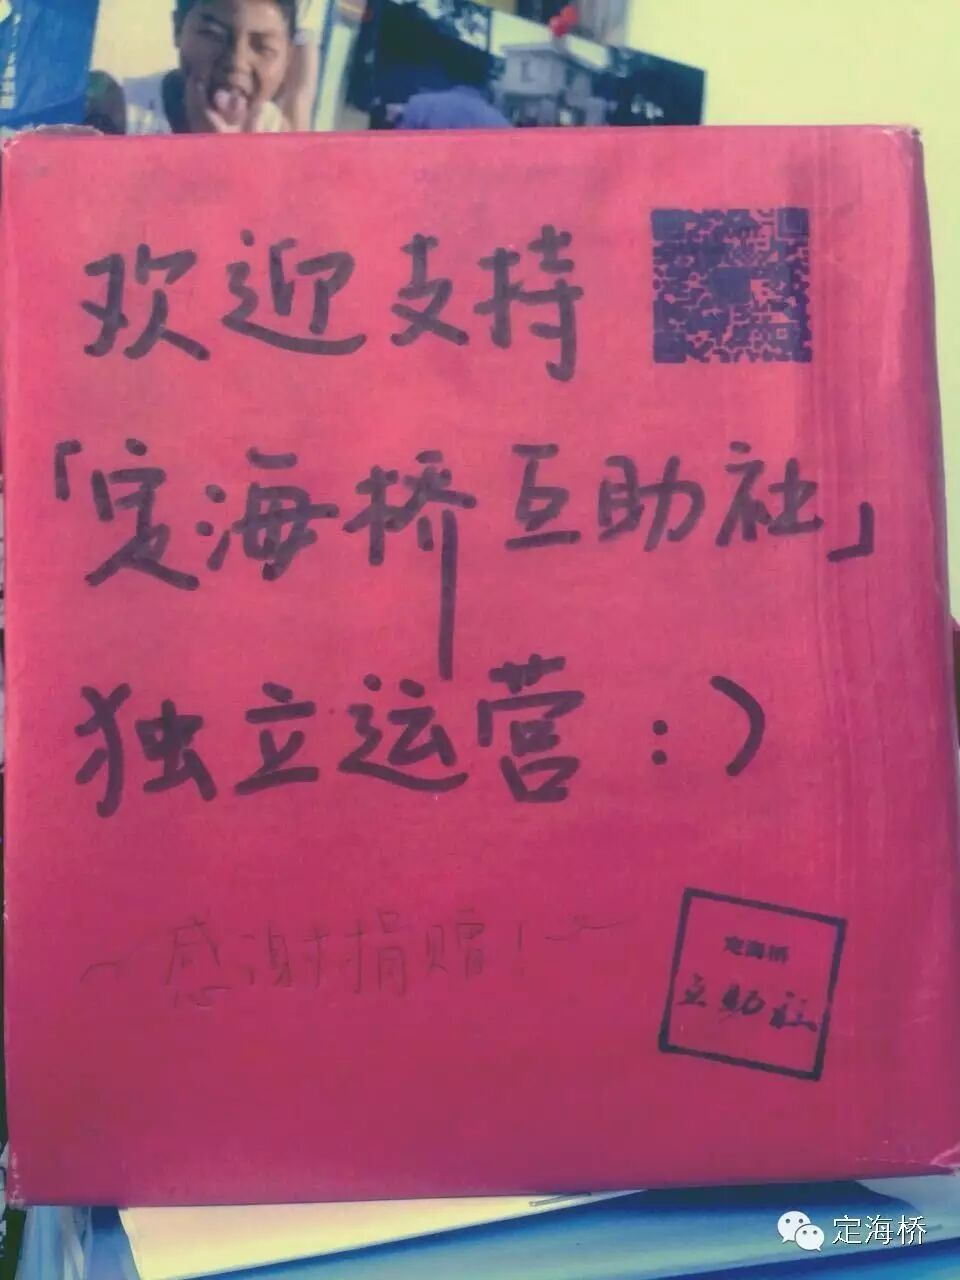 欢迎支持
「定海桥互助社」
独立运营:)
~感谢捐赠!~
定海桥
互助社
定海桥